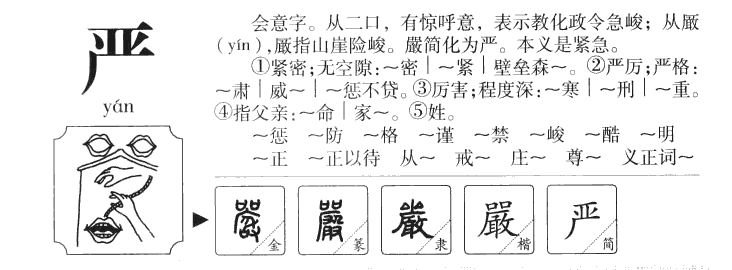 严
yán
会意字。从二口，有惊呼意，表示教化政令急峻；从厰
（yín），厰指山崖险峻。嚴简化为严。本义是紧急。
①紧密；无空隙：~密｜~紧｜壁垒森~。②严厉；严格：
~肃｜威~｜~惩不贷。③厉害；程度深：~寒｜~刑｜~重。
④指父亲：~命｜家~。⑤姓。
~惩 ~防 ~格 ~谨 ~禁 ~峻 ~酷 ~明
~正 ~正以待 从~ 戒~ 庄~ 尊~ 义正词~
嚴 金 嚴 篆 嚴 隶 嚴 楷 严 简